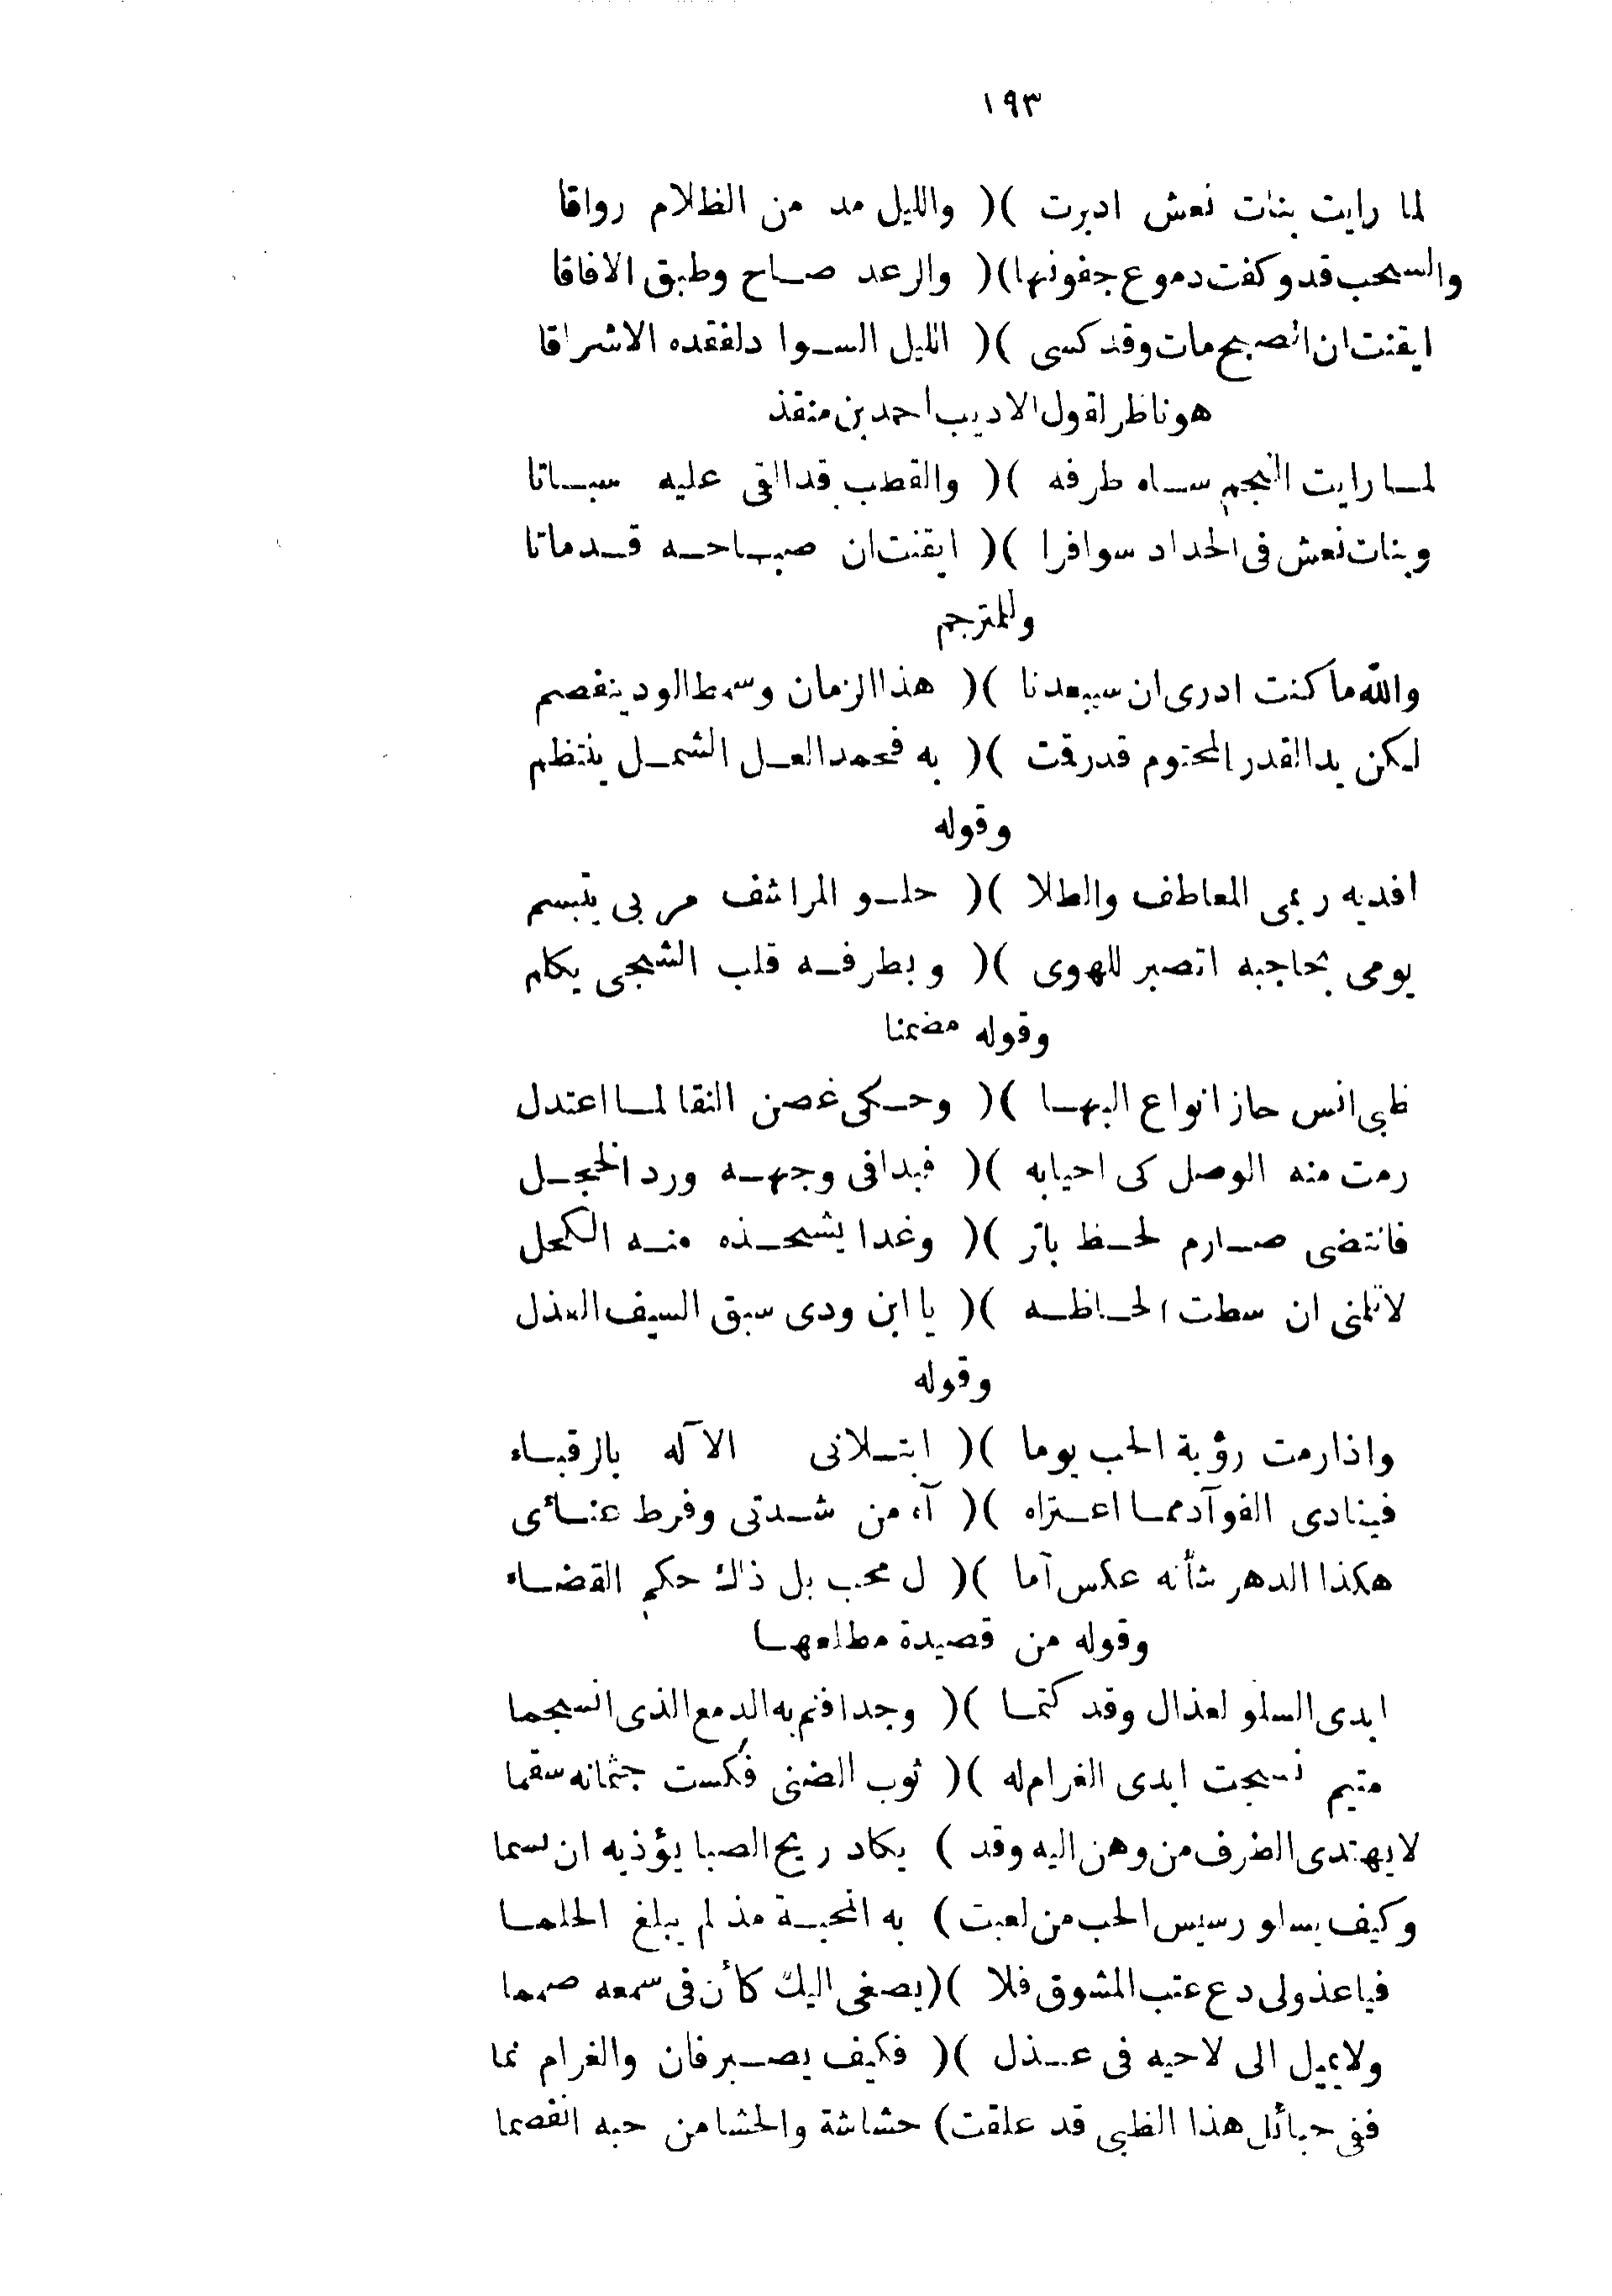 ١٩٣
لما رايت بنات نعش ادبرت )( والليل مد من الظلام رواقا
والسحب قد وكفت دموع جفونها )( والرعد صاح وطبق الافاقا
ايقنت ان الصبح مات وقد كسى )( الليل السوا دلفقده الاشراقا
هو ناظر لقول الاديب احمد بن منقذ
لما رايت النجم ساه طرفه )( والقطب قد القى عليه سباتا
وبنات نعش فى الحداد سوافرا )( ايقنت ان صباحه قد ماتا
وللمترجم
والله ما كنت ادرى ان سيبعدنا )( هذا الزمان وسمط الود ينفصم
لكن يد القدر المحتوم قد رقت )( به فحمد العل الشمل ينتظم
وقوله
افديه ريمى المعاطف والطلا )( حلو المراشف مر بى يتبسم
يومى بحاجبه اتصبر للهوى )( وبطرفه قلب الشجى يكلم
وقوله مضمنا
ظبى انس حاز انواع البها )( وحكى غصن النقا لما اعتدل
رمت منه الوصل كى احيابه )( فبدا فى وجهه ورد الخجل
فانتضى صارم لحظ باتر )( وغدا يشحذه منه الكحل
لا تلمنى ان سطت الحاظه )( يا ابن ودى سبق السيف العذل
وقوله
واذا رمت رؤية الحب يوما )( ابتلانى الآله بالرقباء
فينادى الفوآد مما اعتراه )( آه من شدتى وفرط عنائى
هكذا الدهر شأنه عكس آما )( ل محب بل ذاك حكم القضاء
وقوله من قصيدة مطلعها
ابدى السلو لعذال وقد كتما )( وجدا فنم به الدمع الذى انسجما
متيم نسجت ايدى الغرام له )( ثوب الضنى فكست جثمانه سقما
لا يهتدى الطرف من وهن اليه وقد ) يكاد ريح الصبا يؤذيه ان نسما
وكيف يسلو رسيس الحب من لعبت ) به المحبة مذ لم يبلغ الحلما
فيا عذولى دع عتب المشوق فلا )( يصغى اليك كأن فى سمعه صمما
ولا يميل الى لاحيه فى عذل )( فكيف يصبر فان والغرام نما
ففى حبائل هذا الظبى قد علقت ) حشاشة والحشا من حبه انفصما